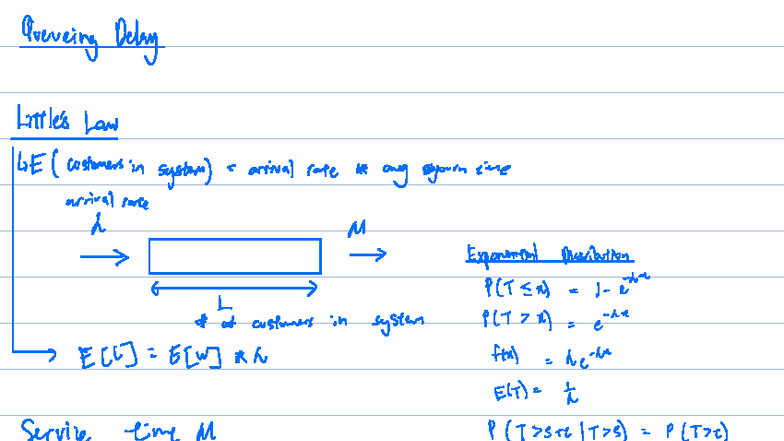 Queueing Delay
Little's Law
E( customers in system) = arrival rate * avg sojourn time
arrival rate
λ
μ
L
# of customers in system
E[L] = E[W] * λ
Exponential Distribution
P(T ≤ x) = 1 - e^-λx
P(T > x) = e^-λx
f(x) = λe^-λx
E(T) = 1/λ
P(T>s+t | T>s) = P(T>t)
Service time μ